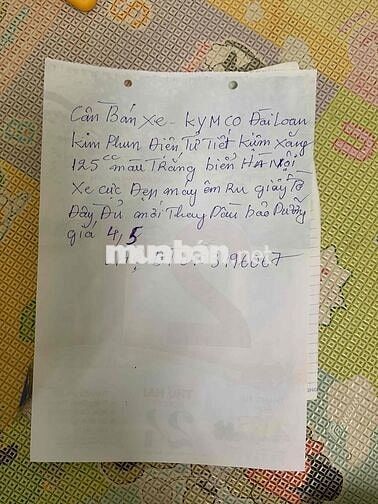 Cần Bán xe - KYMCO Đài Loan
Kim Phun Điện Tử Tiết Kiệm Xăng
125cc màu Trắng biển HÀ Nội
Xe cực Đẹp máy êm Ru giấy Tờ
Đầy Đủ mới Thay Dầu bảo Dưỡng
giá 4,5
muaban.net
5.96067
THỨ HAI